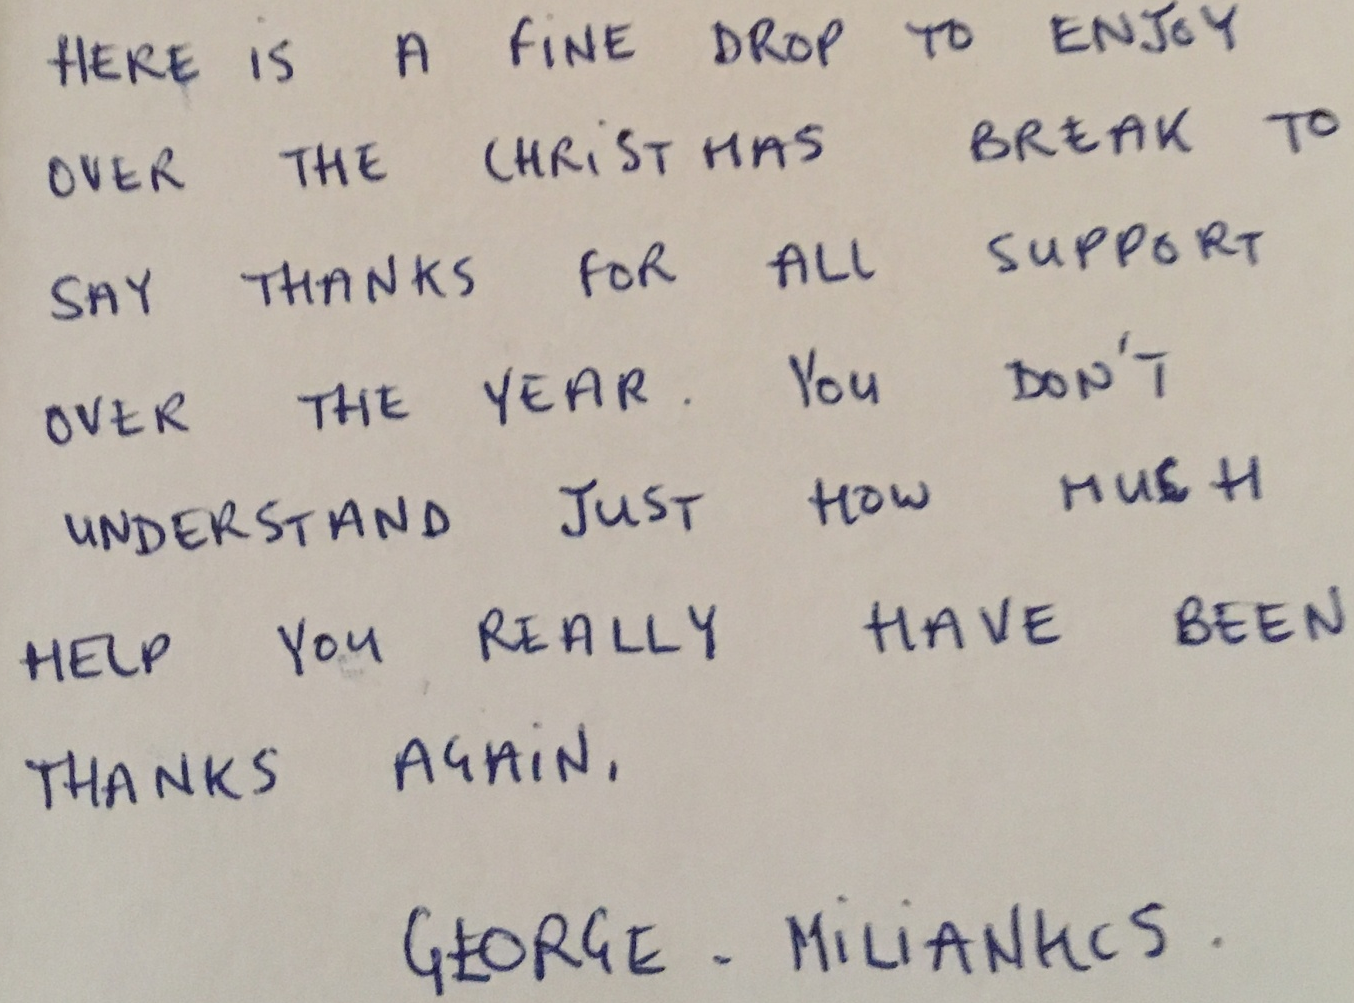 HERE IS A FINE DROP TO ENJOY
OVER THE CHRISTMAS BREAK TO
SAY THANKS FOR ALL SUPPORT
OVER THE YEAR. YOU DON'T
UNDERSTAND JUST HOW MUCH
HELP YOU REALLY HAVE BEEN
THANKS AGAIN.
GEORGE - MILIANKCS.